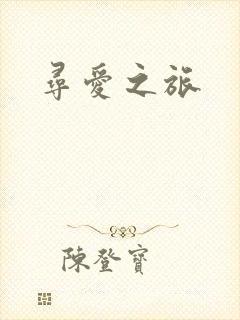 尋愛之旅
陳登寶